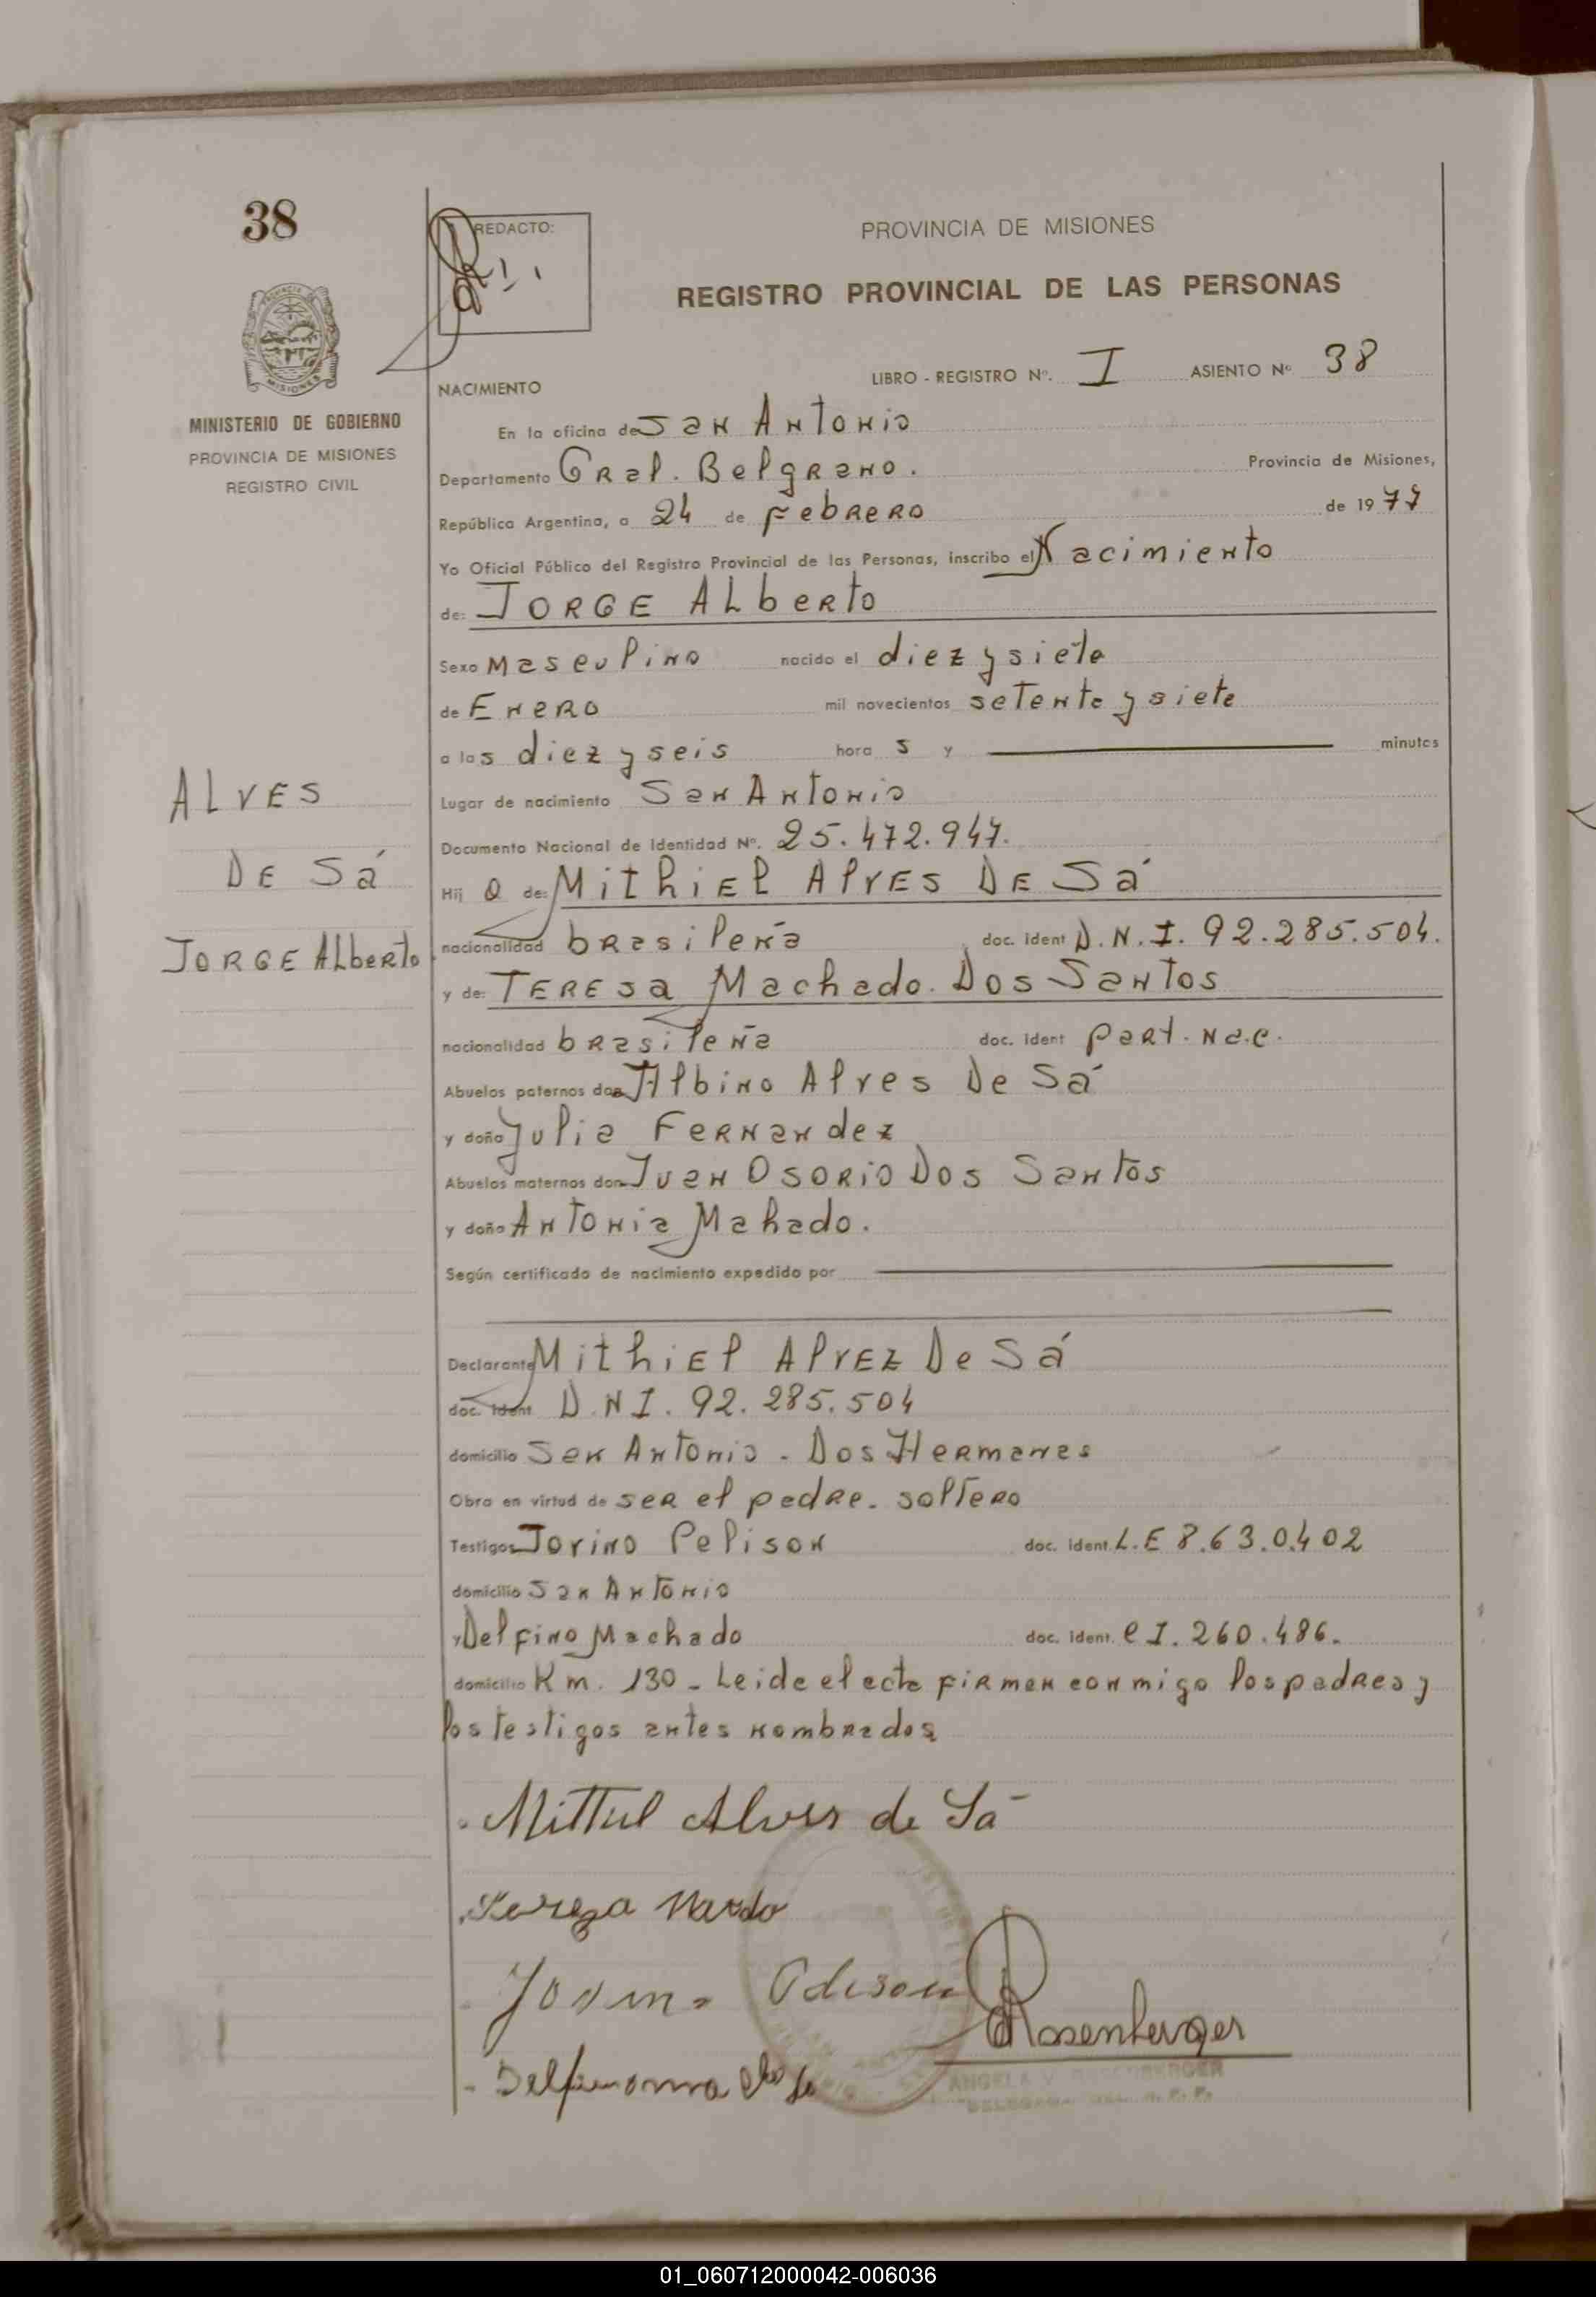 38
REDACTO:
PROVINCIA DE MISIONES
REGISTRO PROVINCIAL DE LAS PERSONAS
MISIONES
MINISTERIO DE GOBIERNO
PROVINCIA DE MISIONES
REGISTRO CIVIL
NACIMIENTO LIBRO - REGISTRO Nº. I ASIENTO Nº 38
En la oficina de San Antonio
Departamento Gral. Belgrano. Provincia de Misiones,
República Argentina, a 24 de Febrero de 1977
Yo Oficial Público del Registro Provincial de las Personas, inscribo el Nacimiento
de: JORGE ALberto
Sexo Masculino nacido el diez y siete
de Enero mil novecientos setenta y siete
a las diez y seis hora s y minutos
Lugar de nacimiento San Antonio
Documento Nacional de Identidad Nº. 25.472.947.
ALVES
DE Sá
JORGE ALberto
Hij o de: Mithiel Alves De Sá
nacionalidad brasileña doc. ident D.N.I. 92.285.504.
y de: TERESa Machado Dos Santos
nacionalidad brasileña doc. ident part. nac.
Abuelos paternos don Albino Alves De Sá
y doña Julia Fernandez
Abuelos maternos don Juan Osorio Dos Santos
y doña Antonia Mahado.
Según certificado de nacimiento expedido por
Declarante Mithiel Alvez De Sá
doc. ident D.N.I. 92.285.504
domicilio San Antonio - Dos Hermanas
Obra en virtud de ser el padre. soltero
Testigos Jovino Pelison doc. ident. L.E 8.63.0.402
domicilio San Antonio
y Delfino Machado doc. ident. C I. 260.486.
domicilio Km. 130 - Leida el acta firman conmigo los padres y
los testigos antes nombrados
Alves de Sá
Rosenberger
ANGELA V. ROSENBERGER
01_060712000042-006036